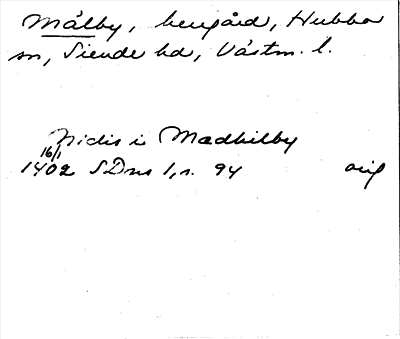 Målby, herrgård, Hubbo
sn, Siende hd, Västm. l.
Nidis i Madhilby
16/1
1402 SDns 1, s. 94 orig